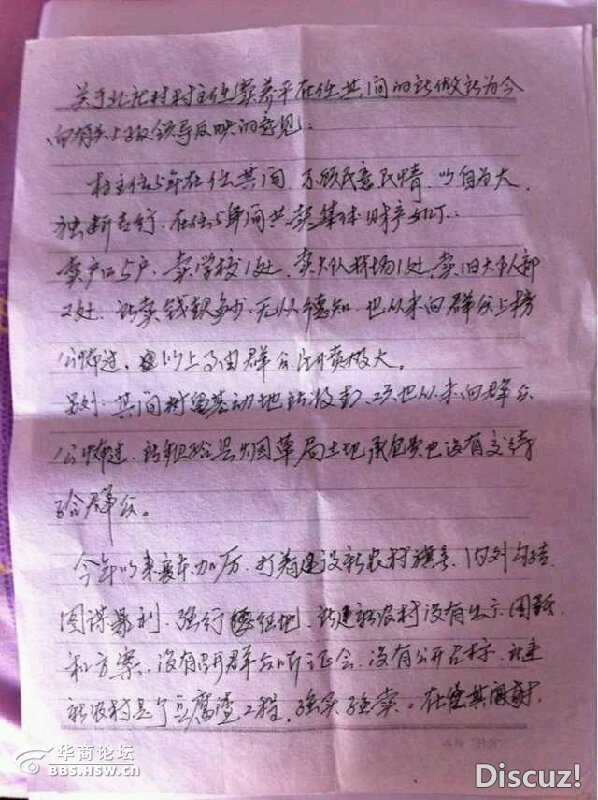 关于北 村村主任 养平在任其间的所做所为今
向有关上级领导反映的意见:
村主任5年在位其间,不顾民意民情,以自为大,
独断专行,在位5年间共卖集体财产如下:
卖户口5户,卖学校1处,卖大队 场1处,卖旧大队部
2处,所卖钱款多少,无从得知,也从未向群众上榜
公布过,以上 由群众 极大。
另外,其间村里基动地所收 款项也从未向群众
公布过,所租给县烟草局土地承包费也没有交待
给群众。
今年以来变本加厉,打着建设新农村旗号,内外勾结,
图谋暴利,强行征地,所建新农村没有出示图纸
和方案,没有召开群众听证会,没有公开召标,所建
新农村是个豆腐渣工程,强买强卖。在位其间
华商论坛
BBS.HSW.CN
Discuz!